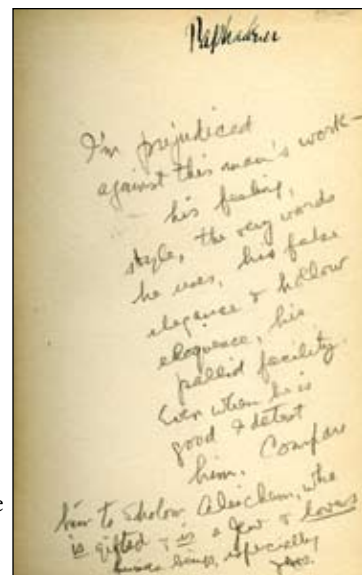 I'm prejudiced
against this man's work—
his feeling,
style, the very words
he uses, his false
elegance & hollow
eloquence, his
pallid facility.
Even when he is
good I detest
him. Compare
him to Sholom Aleichem, who
is gifted & is a Jew & loves
human beings, especially
Jews.
e